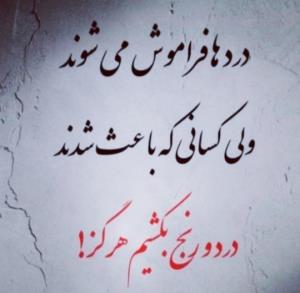 دردها فراموش می شوند
ولی کسانی که باعث شدند
درد و رنج بکشیم هرگز!